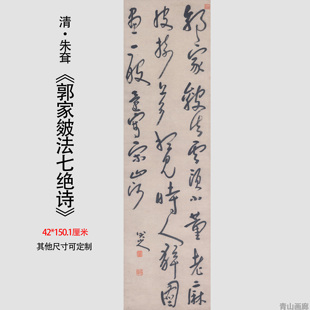 清·朱耷
《郭家皴法七绝诗》
42*150.1厘米
其他尺寸可定制
郭家皴法雲頭小董老麻
皮樹上多想見時人解圖
畫一峯還寫宋山河
八大山人
青山画廊